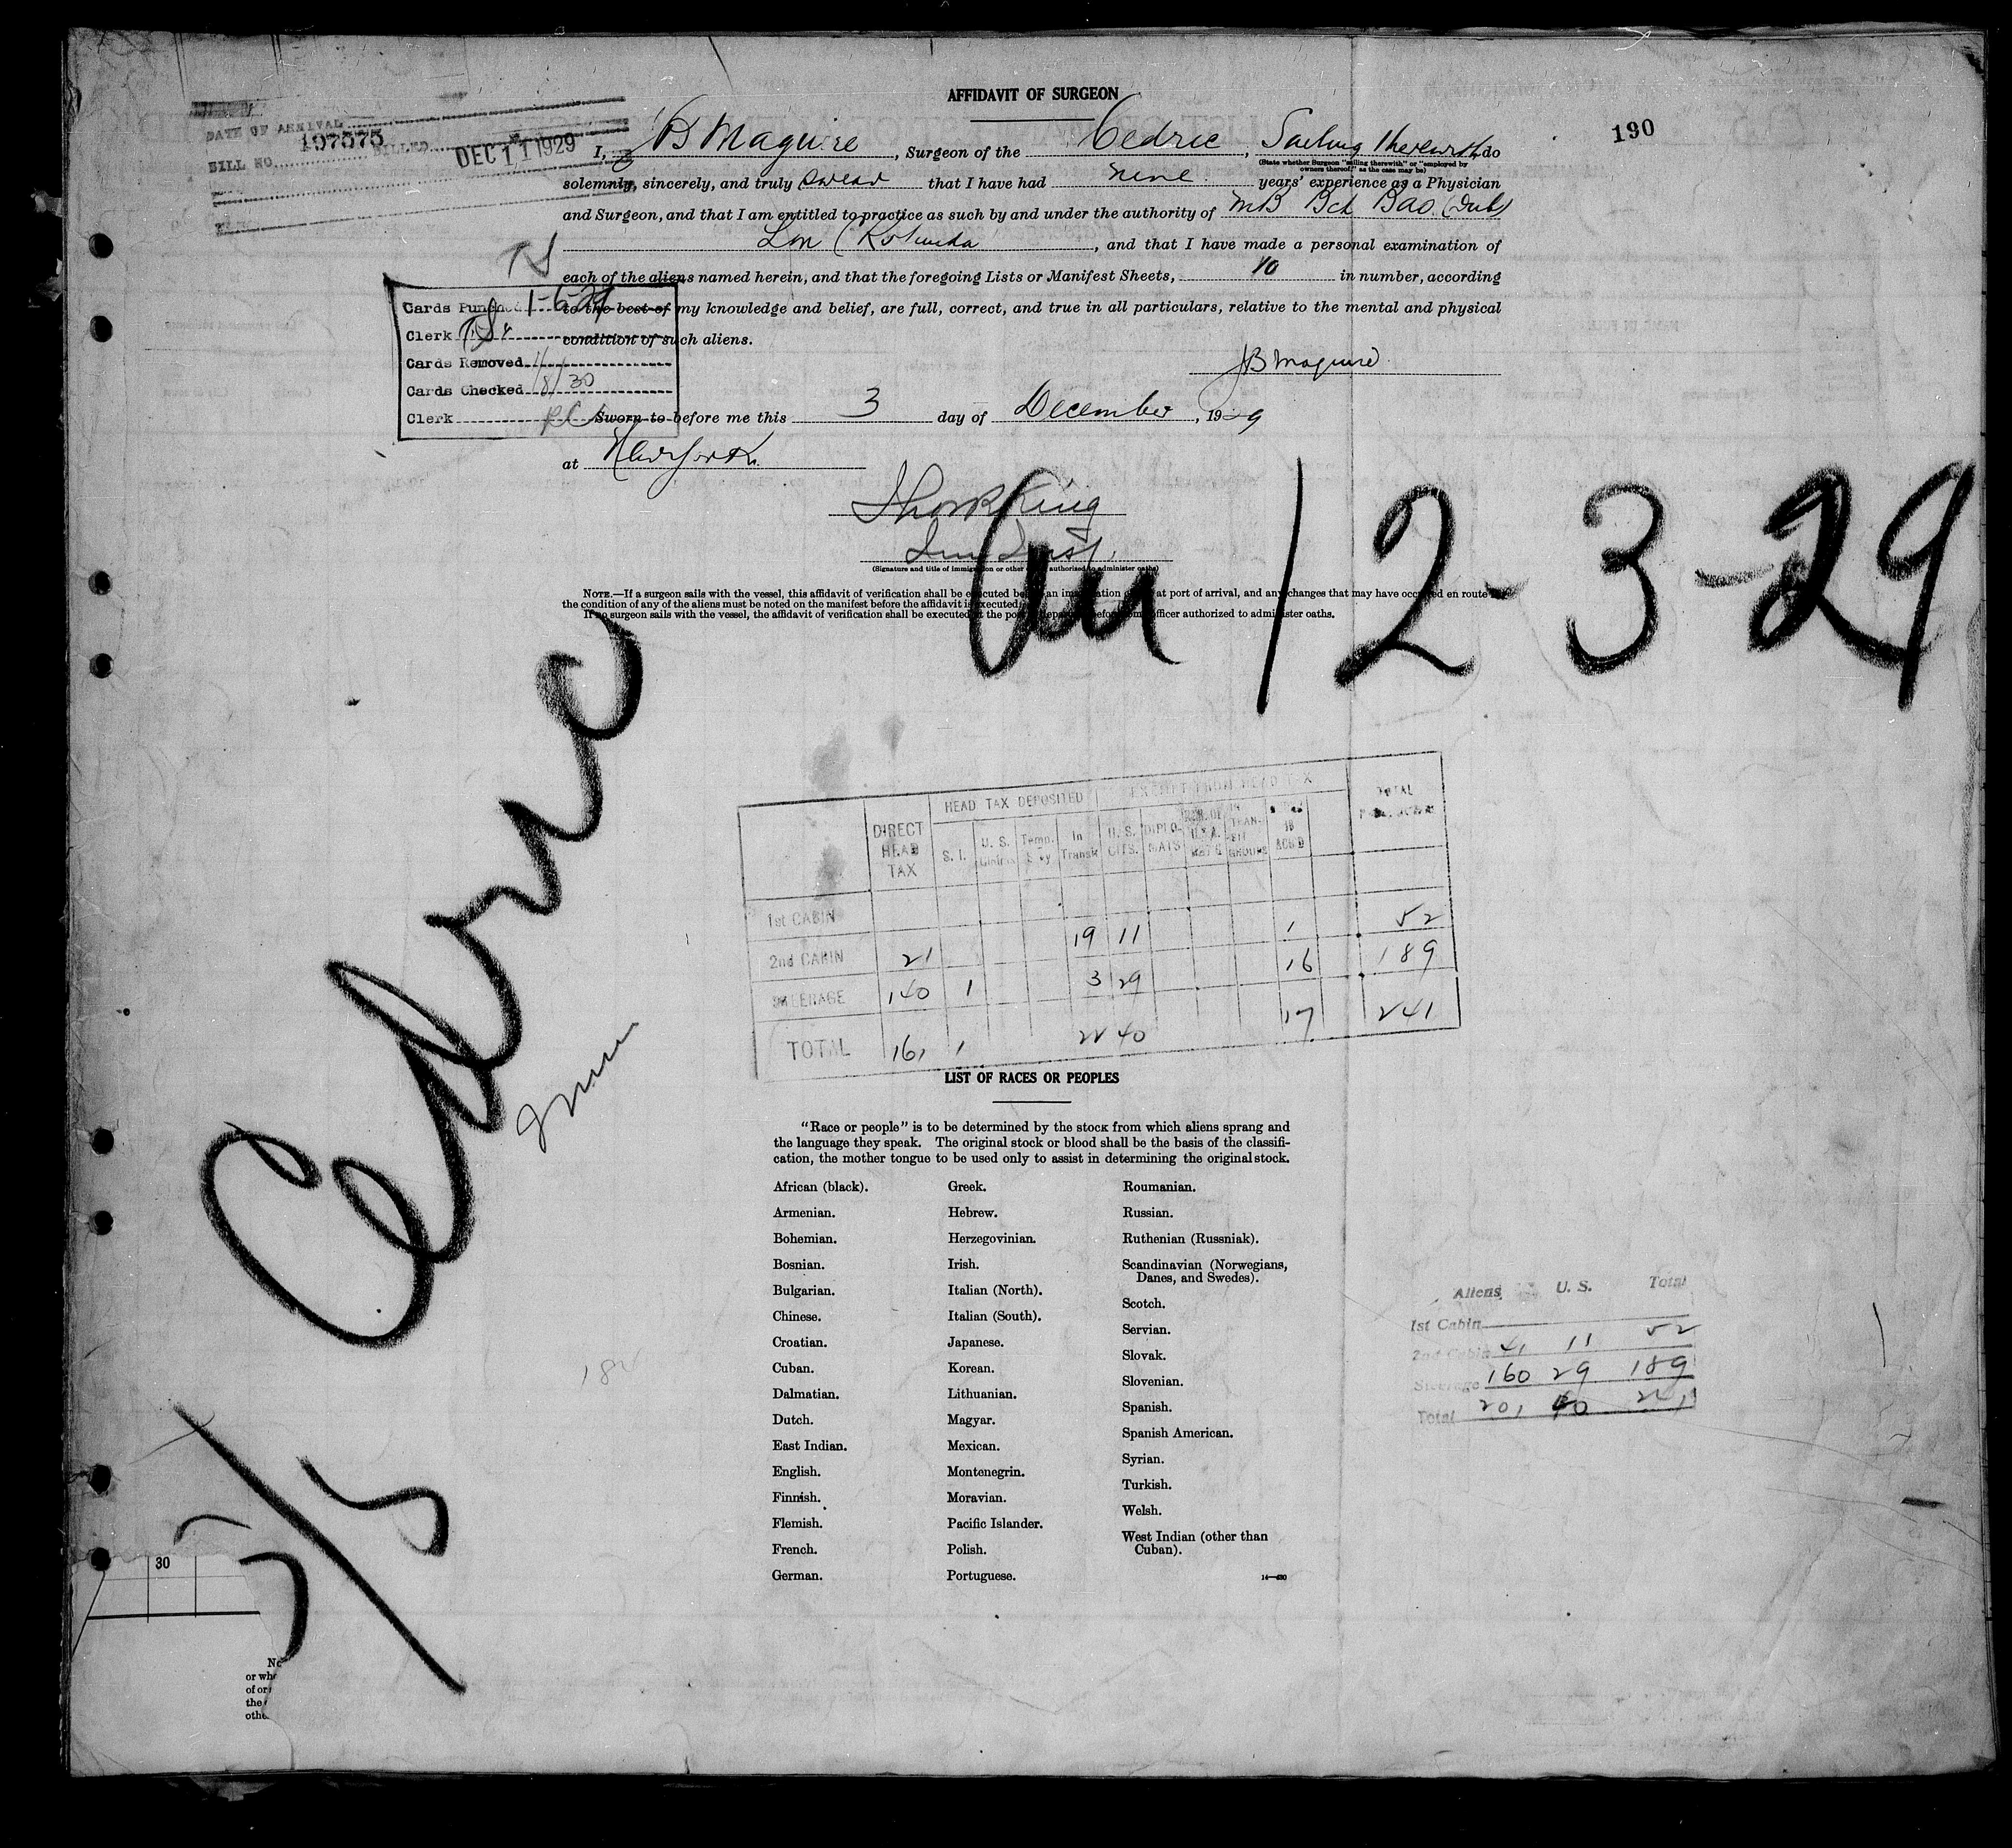 AFFIDAVIT OF SURGEON
190
DATE OF ARRIVAL
BILL NO. 197575 BILLED DEC 11 1929
I, JB Maguire, Surgeon of the Cedric, Sailing therewith, do
(State whether Surgeon "sailing therewith" or "employed by owners thereof," as the case may be)
solemnly, sincerely, and truly swear that I have had nine years' experience as a Physician
and Surgeon, and that I am entitled to practice as such by and under the authority of MB Bch Bao (Dub)
Lm (Rotunda, and that I have made a personal examination of
each of the aliens named herein, and that the foregoing Lists or Manifest Sheets, 10 in number, according
to the best of my knowledge and belief, are full, correct, and true in all particulars, relative to the mental and physical
condition of such aliens.
JB Maguire
Cards Punched 1-6-
Clerk
Cards Removed
Cards Checked 30
Clerk
Sworn to before me this 3 day of December, 1929
at New York
King
(Signature and title of immigration or other officer authorized to administer oaths)
12-3-29
NOTE.—If a surgeon sails with the vessel, this affidavit of verification shall be executed before an immigration officer at port of arrival, and any changes that may have occurred en route in
the condition of any of the aliens must be noted on the manifest before the affidavit is executed.
If no surgeon sails with the vessel, the affidavit of verification shall be executed at the port of departure before some officer authorized to administer oaths.
Cedric
DIRECT HEAD TAX
HEAD TAX DEPOSITED
EXEMPT FROM HEAD TAX
TOTAL
S. I. U. S. Temp. In Transit U. S. CITS. DIPLOMATS
1st CABIN
2nd CABIN 21 19 11 1 52
STEERAGE 140 1 3 29 16 189
TOTAL 161 1 22 40 17 241
LIST OF RACES OR PEOPLES
"Race or people" is to be determined by the stock from which aliens sprang and
the language they speak. The original stock or blood shall be the basis of the classifi-
cation, the mother tongue to be used only to assist in determining the original stock.
African (black).
Armenian.
Bohemian.
Bosnian.
Bulgarian.
Chinese.
Croatian.
Cuban.
Dalmatian.
Dutch.
East Indian.
English.
Finnish.
Flemish.
French.
German.
Greek.
Hebrew.
Herzegovinian.
Irish.
Italian (North).
Italian (South).
Japanese.
Korean.
Lithuanian.
Magyar.
Mexican.
Montenegrin.
Moravian.
Pacific Islander.
Polish.
Portuguese.
Roumanian.
Russian.
Ruthenian (Russniak).
Scandinavian (Norwegians,
Danes, and Swedes).
Scotch.
Servian.
Slovak.
Slovenian.
Spanish.
Spanish American.
Syrian.
Turkish.
Welsh.
West Indian (other than
Cuban).
Aliens U. S. Total
1st Cabin
2nd Cabin 41 11 52
Steerage 160 29 189
Total 201 40 241
30
or whe
of or
the
othe